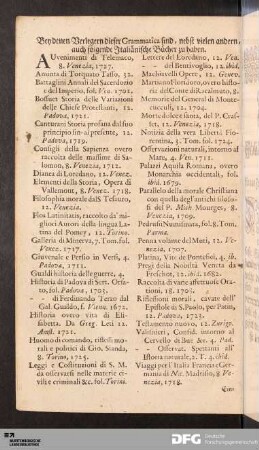 Bey denen Verlegern dieser Grammatica sind, nebst vielen andern,
auch folgende Italiänische Bücher zu haben.
AUvenimenti di Telemaco,
8. Venezia, 1727.
Aminta di Torquato Tasso, 32.
Battaglini Annali del Sacerdozio
ed Imperio, fol. Ven. 1701.
Bossuet Storia delle Variazioni
delle Chiese Protestanti, 12.
Padova, 1721.
Canturani Storia profana dal suo
principio sin' al presente, 12.
Padova, 1719.
Consigli della Sapienza overo
raccolta delle massime di Sa-
lomon, 8. Venezia, 1712.
Dianea di Loredano, 12. Venez.
Elementi della Storia, Opera di
Vallemont, 8. Venez. 1718.
Filosofia morale del Tesauro,
12. Venezia,
Flos Latinitatis, raccolto da' mi-
gliori Autori della lingua La-
tina del Pomey, 12. Torino.
Galleria di Minerva, 7. Tom. fol.
Venez. 1717.
Giuvenale e Persio in Versi, 4.
Padova, 1711.
Gualdi historia delle guerre, 4.
Historia di Padova di Sert. Orsa-
to, fol. Padova, 1703.
- - di Ferdinando Terzo dal
Gal. Gualdo, f. Viena, 1672.
Historia overo vita di Eli-
sabetta. Da Greg. Leti 12.
Amst. 1721.
Huomo di comando, riflessi mo-
rali e politici di Gio. Sianda,
8. Torino, 1725.
Leggi e Costituzioni di S. M.
da osservarsi nelle materie ci-
vili e criminali &c. fol. Torini.
Lettere del Loredano, 12. Ven.
- - del Bentivoglio, 12. ibid.
Machiavelli Opere, 12.
Martirio Florido, overo historia
del Conte di Rocalmuto, 8.
Memorie del General di Monte-
cuculi, 12. 1704.
Morte dolce e santa, del P. Cras-
set 12. Venezia, 1718.
Notizie della vera Libertà Fio-
rentina, 3. Tom. fol. 1724.
Osservazioni naturali, intorno al
Mare, 4. Ven. 1711.
Palazzi Aquila Romana, overo
Monarchia occidentali, fol.
ibid. 1679.
Parallelo della morale Christiana
con quella degl'antichi filoso-
fi del P. Mich. Mourgues, 8.
Venezia, 1709.
Pedrusi Numismata, fol. 8. Tom.
Parma.
Penna volante del Muti, 12. Ve-
nezia, 1707.
Platina, Vite de Pontefici, 4. ib.
Pregi della Nobiltà Veneta da
Freschot, 12. ibid. 1682.
Raccolta di varie affettuose Ora-
tioni, 18. 1705.
Riflessioni morali, cavate dell'
Epistole di S. Paolo, per Patin,
12. Padova, 1723.
Testamento nuovo, 12. Zurigo.
Valisnieri, Consid. intorno al
Cervello di Bue &c. 4. Pad.
- - Osservat. Spettanti all'
Istoria naturale, 2. T. 4. ibid.
Viaggi per l'Italia Francia e Ger-
mania di Nic. Madrisio, 8. Ve-
nezia, 1718.
DFG Deutsche
Forschungsgemeinschaft